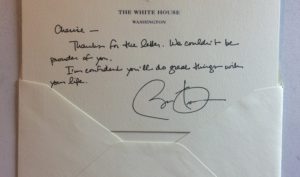 THE WHITE HOUSE
WASHINGTON
Cherise —
Thanks for the letter. We couldn't be
prouder of you.
I'm confident you'll do great things with
your life.